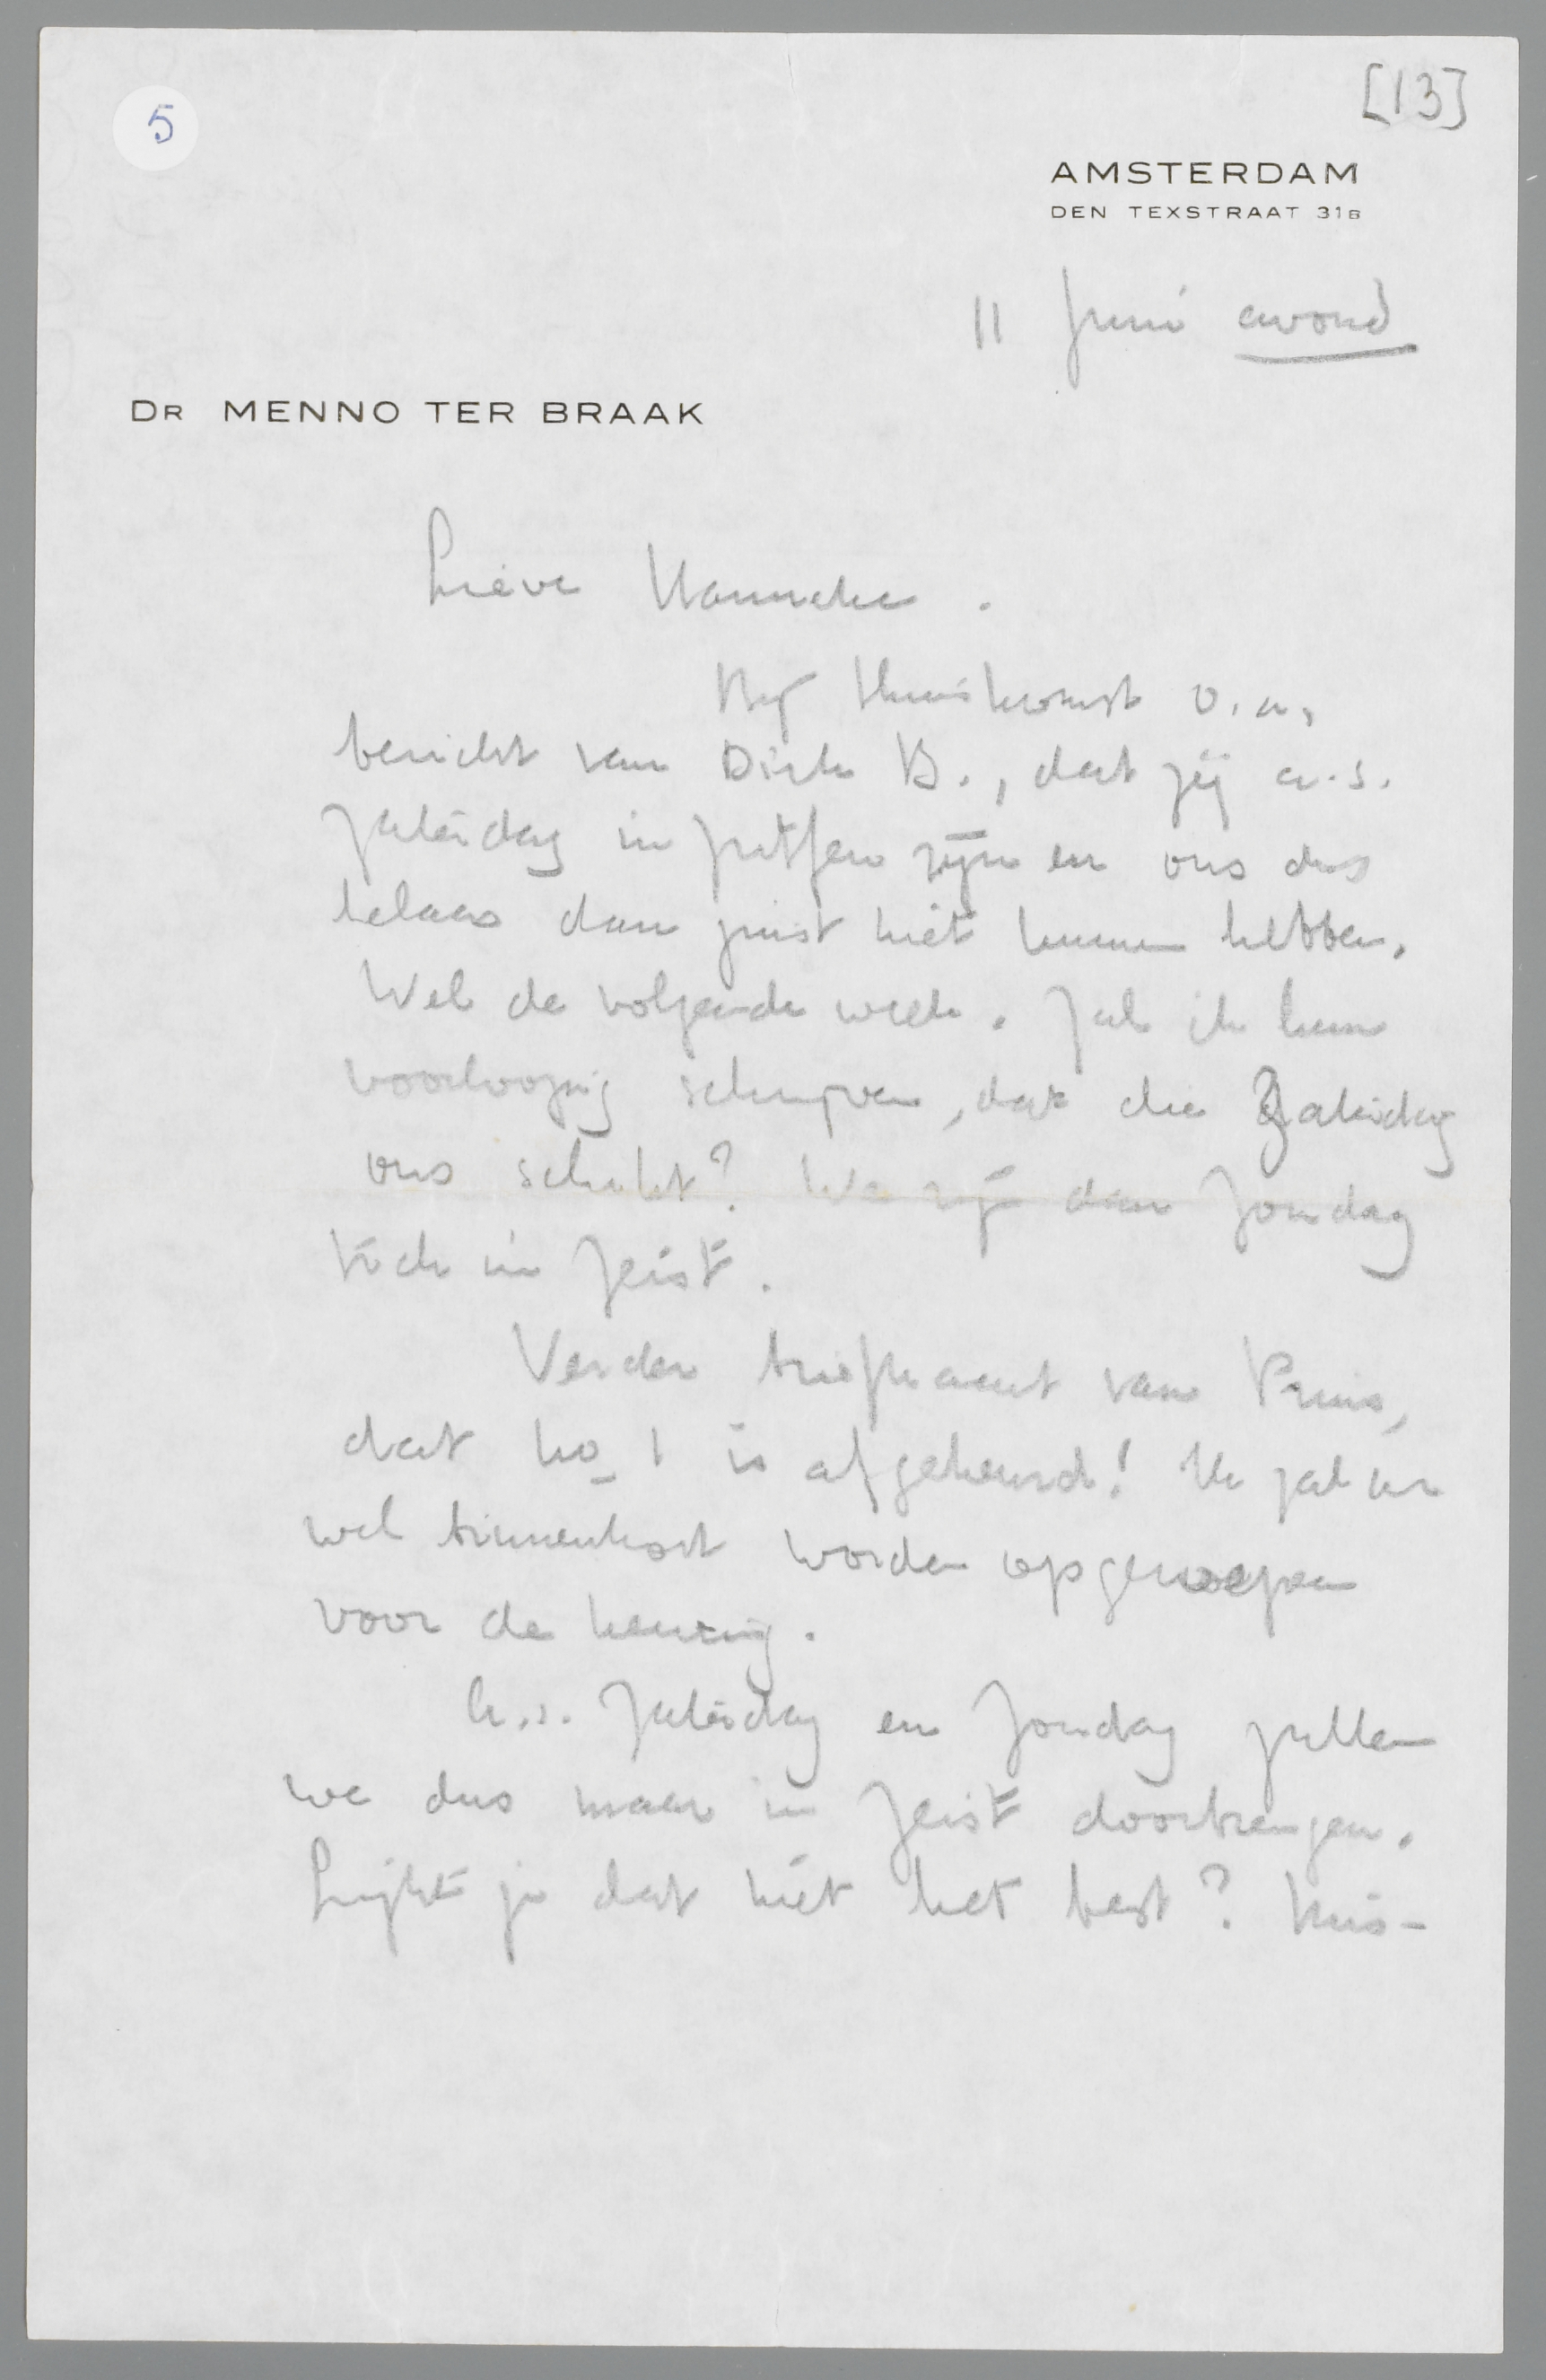 5
[13]
AMSTERDAM
DEN TEXSTRAAT 31B
11 Juni avond
DR MENNO TER BRAAK
Lieve Hanneke.
Bij thuiskomst o.a.
bericht van Dirk B., dat zij a.s.
Zaterdag in Zutfen zijn en ons dus
helaas dan juist niet kunnen hebben.
Wel de volgende week. Zal ik hun
voorloopig schrijven, dat die Zaterdag
ons schikt? We zijn dan Zondag
toch in Zeist.
Verder briefkaart van Prins,
dat no 1 is afgekeurd! Ik zal er
wel binnenkort worden opgeroepen
voor de keuring.
A.s. Zaterdag en Zondag zullen
we dus maar in Zeist doorbrengen.
Lijkt je dat niet het best? Mis-